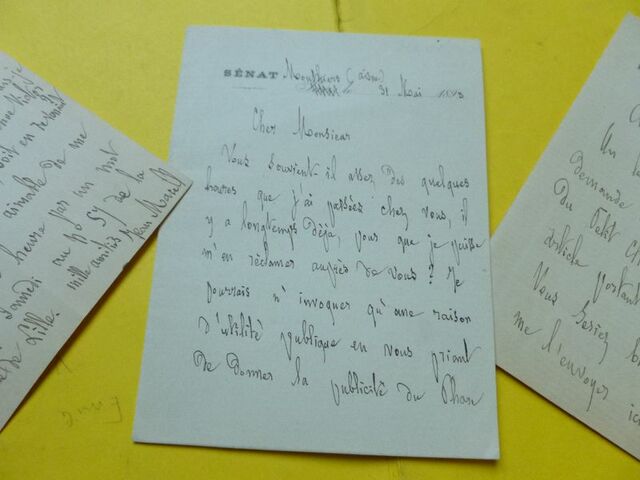 SÉNAT
31 Mai
Cher Monsieur
Vous souvient-il assez des quelques
heures que j'ai passées chez vous, il
y a longtemps déjà, pour que je puisse
m'en réclamer auprès de vous? Je
pourrais n'invoquer qu'une raison
d'utilité publique en vous priant
de donner la publicité du Phare
soit en
aimable de me
heure par un mot
Samedi au n° 57 de la
mille amitiés
de Lille.
Un
demande
du Petit
article portant
Vous seriez
me l'envoyer ici